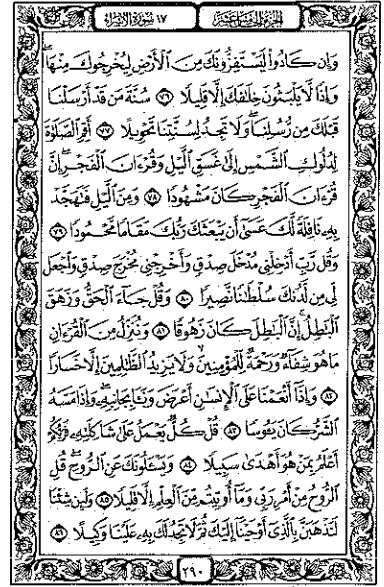 الجزء الخامس عشر
١٧ سورة الإسراء
وَإِن كَادُوا۟ لَيَسْتَفِزُّونَكَ مِنَ ٱلْأَرْضِ لِيُخْرِجُوكَ مِنْهَا ۖ
وَإِذًا لَّا يَلْبَثُونَ خِلَـٰفَكَ إِلَّا قَلِيلًا ٧٦ سُنَّةَ مَن قَدْ أَرْسَلْنَا
قَبْلَكَ مِن رُّسُلِنَا ۖ وَلَا تَجِدُ لِسُنَّتِنَا تَحْوِيلًا ٧٧ أَقِمِ ٱلصَّلَوٰةَ
لِدُلُوكِ ٱلشَّمْسِ إِلَىٰ غَسَقِ ٱلَّيْلِ وَقُرْءَانَ ٱلْفَجْرِ ۖ إِنَّ
قُرْءَانَ ٱلْفَجْرِ كَانَ مَشْهُودًا ٧٨ وَمِنَ ٱلَّيْلِ فَتَهَجَّدْ
بِهِۦ نَافِلَةً لَّكَ عَسَىٰٓ أَن يَبْعَثَكَ رَبُّكَ مَقَامًا مَّحْمُودًا ٧٩
وَقُل رَّبِّ أَدْخِلْنِى مُدْخَلَ صِدْقٍ وَأَخْرِجْنِى مُخْرَجَ صِدْقٍ وَٱجْعَل
لِّى مِن لَّدُنكَ سُلْطَـٰنًا نَّصِيرًا ٨٠ وَقُلْ جَآءَ ٱلْحَقُّ وَزَهَقَ
ٱلْبَـٰطِلُ ۚ إِنَّ ٱلْبَـٰطِلَ كَانَ زَهُوقًا ٨١ وَنُنَزِّلُ مِنَ ٱلْقُرْءَانِ
مَا هُوَ شِفَآءٌ وَرَحْمَةٌ لِّلْمُؤْمِنِينَ ۙ وَلَا يَزِيدُ ٱلظَّـٰلِمِينَ إِلَّا خَسَارًا
٨٢ وَإِذَآ أَنْعَمْنَا عَلَى ٱلْإِنسَـٰنِ أَعْرَضَ وَنَـَٔا بِجَانِبِهِۦ ۖ وَإِذَا مَسَّهُ
ٱلشَّرُّ كَانَ يَـُٔوسًا ٨٣ قُلْ كُلٌّ يَعْمَلُ عَلَىٰ شَاكِلَتِهِۦ فَرَبُّكُمْ
أَعْلَمُ بِمَنْ هُوَ أَهْدَىٰ سَبِيلًا ٨٤ وَيَسْـَٔلُونَكَ عَنِ ٱلرُّوحِ ۖ قُلِ
ٱلرُّوحُ مِنْ أَمْرِ رَبِّى وَمَآ أُوتِيتُم مِّنَ ٱلْعِلْمِ إِلَّا قَلِيلًا ٨٥ وَلَئِن شِئْنَا
لَنَذْهَبَنَّ بِٱلَّذِىٓ أَوْحَيْنَآ إِلَيْكَ ثُمَّ لَا تَجِدُ لَكَ بِهِۦ عَلَيْنَا وَكِيلًا ٨٦
٢٩٠